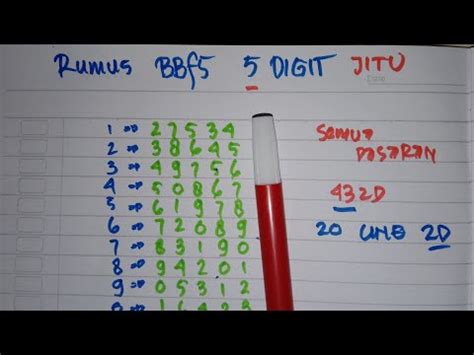 Rumus BBfS 5 DIGIT JITU
1 => 27534
2 => 38645
3 => 49756
4 => 50867
5 => 61978
6 => 72089
7 => 83190
8 => 94201
9 => 05312
SEMUA
PASARAN
432D
20 LINE 2D